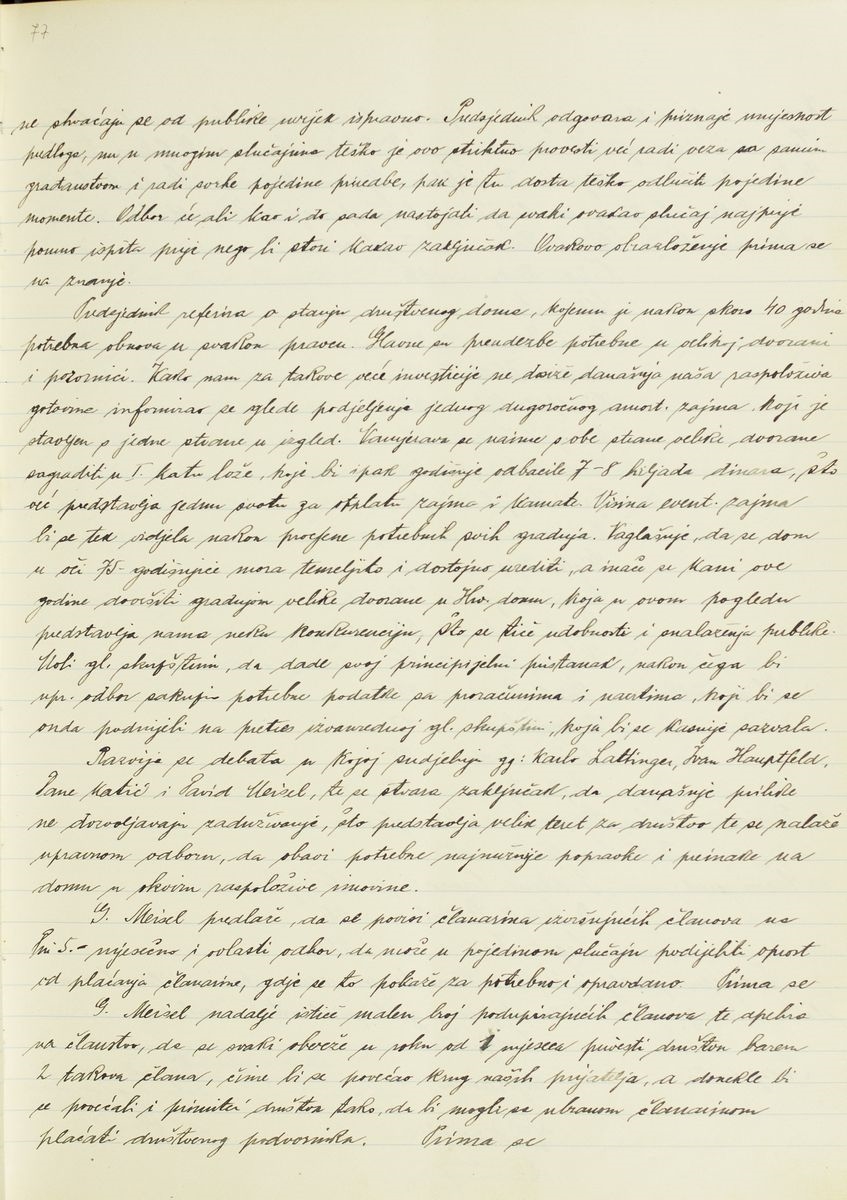 77
ne shvaćaju se od publike uvijek ispravno. Predsjednik odgovara i priznaje umjesnost
predloga, no u mnogim slučajevima teško je ovo striktno provesti već radi veza sa samim
građanstvom i radi svrhe pojedine priredbe, pak je tu dosta teško odlučiti pojedine
momente. Odbor će ali kao i do sada nastojati da svaki ovakav slučaj najprije
pomno ispita prije nego li stori kakav zaključak. Ovakovo obrazloženje prima se
na znanje.
Predsjednik referira o stanju društvenog doma, kojemu je nakon skoro 40 godina
potrebna obnova u svakom pravcu. Glavne su preudezbe potrebne u velikoj dvorani
i pozornici. Kako nam za takove veće investicije ne dosiže današnja naša raspoloživa
gotovina informirao se glede podjeljenja jednog dugoročnog amort. zajma koji je
stavljen s jedne strane u izgled. Namjerava se naime s obe strane velike dvorane
sagraditi u I. katu lože, koje bi ipak godišnje odbacile 7-8 hiljada dinara, što
već predstavlja jednu svotu za otplatu zajma i kamate. Visina event. zajma
bi se tek vidjela nakon procjene potrebnih svih gradnja. Naglašuje, da se dom
u oči 75-godišnjice mora temeljito i dostojno urediti, a inače se kani ove
godine dovršiti gradnjom velike dvorane u Hrv. domu, koja u ovom pogledu
predstavlja nama neku konkurenciju, što se tiče udobnosti i snalaženja publike.
Moli gl. skupštinu, da dade svoj principijelni pristanak, nakon čega bi
upr. odbor sakupio potrebne podatke sa proračunima i nacrtima, koji bi se
onda podnijeli na pretres izvanrednoj gl. skupštini, koja bi se kasnije sazvala.
Razvija se debata u kojoj sudjeluju gg: Karlo Lattinger, Ivan Hauptfeld,
Pane Matić i David Meisel, te se stvara zaključak, da današnje prilike
ne dozvoljavaju zaduživanje, što predstavlja velik teret za društvo te se nalaže
upravnom odboru, da obavi potrebne najnužnije popravke i preinake na
domu u okviru raspoložive imovine.
G. Meisel predlaže, da se povisi članarina izvršujućih članova na
Din 5.- mjesečno i ovlasti odbor, da može u pojedinom slučaju podijeliti oprost
od plaćanja članarine, gdje se to pokaže za potrebno i opravdano. Prima se
G. Meisel nadalje ističe malen broj podupirajućih članova te apelira
na članstvo, da se svaki obveže u roku od 1 mjeseca privesti društvu barem
2 takova člana, čime bi se povećao krug naših prijatelja, a donekle bi
se povećali i primitci društva tako, da bi mogli sa ubranom članarinom
plaćati društvenog podvornika. Prima se